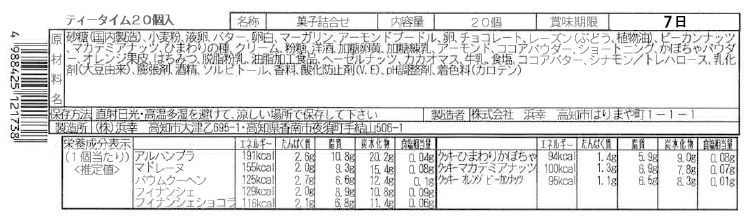 ティータイム２０個入
名称 菓子詰合せ 内容量 ２０個 賞味期限 7日
原材料名
砂糖(国内製造)、小麦粉、液卵、バター、卵白、マーガリン、アーモンドプードル、卵、チョコレート、レーズン(ぶどう、植物油)、ピーカンナッツ
、マカデミアナッツ、ひまわりの種、クリーム、粉糖、洋酒、加糖卵黄、加糖練乳、アーモンド、ココアパウダー、ショートニング、かぼちゃパウダ
ー、オレンジ果皮、はちみつ、脱脂粉乳、油脂加工食品、ヘーゼルナッツ、カカオマス、牛乳、食塩、ココアバター、シナモン／トレハロース、乳化
剤(大豆由来)、膨張剤、酒精、ソルビトール、香料、酸化防止剤(V.E)、pH調整剤、着色料(カロテン)
保存方法 直射日光・高温多湿を避けて、涼しい場所で保存して下さい 製造者 株式会社 浜幸 高知市はりまや町１－１－１
製造所 (株)浜幸 高知市大津乙695-1・高知県香南市夜須町手結山506-1
栄養成分表示
(１個当たり)
<推定値>
エネルギー たんぱく質 脂質 炭水化物 食塩相当量
アルハンブラ 191kcal 2.6g 10.8g 20.2g 0.04g
マドレーヌ 155kcal 2.0g 9.3g 15.4g 0.08g
バウムクーヘン 125kcal 2.7g 6.6g 12.4g 0.1g
フィナンシェ 129kcal 2.0g 8.9g 10.8g 0.09g
フィナンシェショコラ 116kcal 2.1g 6.8g 11.4g 0.06g
エネルギー たんぱく質 脂質 炭水化物 食塩相当量
クッキーひまわりかぼちゃ 94kcal 1.4g 5.9g 9.0g 0.08g
クッキーマカデミアナッツ 100kcal 1.3g 6.9g 7.8g 0.07g
クッキー オレンジピーカンナッツ 95kcal 1.1g 6.5g 8.3g 0.01g
4 988425 121739